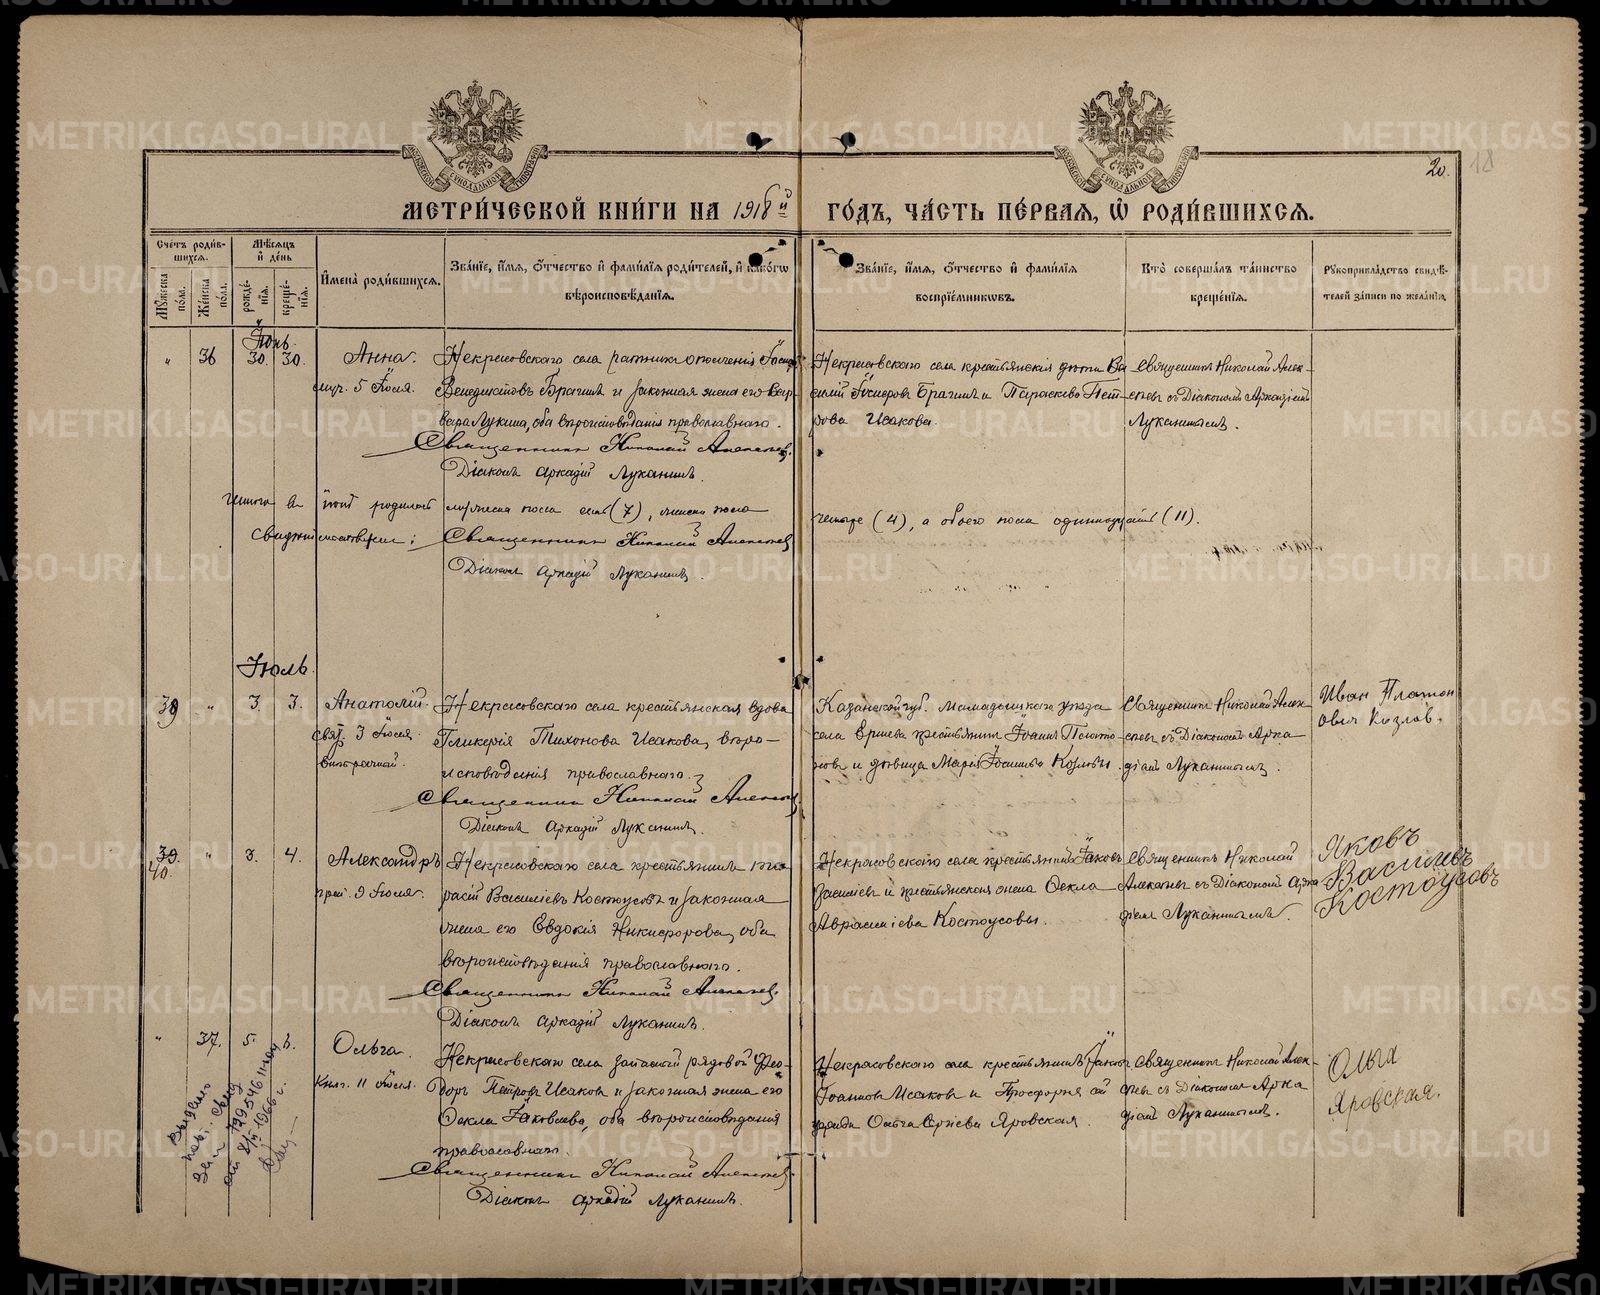 20. 18
МЕТРИЧЕСКОЙ КНИГИ НА 1918 й ГОДЪ, ЧАСТЬ ПЕРВАЯ, Ѡ РОДИВШИХСЯ.
Счетъ родившихся.
Мужеска пола.
Женска пола.
Мѣсяцъ и день
рожденія.
крещенія.
Имена родившихся.
Званіе, имя, отчество и фамилія родителей, и какогѡ
вѣроисповѣданія.
Званіе, имя, отчество и фамилія
воспріемникѡвъ.
Кто совершалъ таинство
крещенія.
Рукоприкладство свидѣ-
телей записи по желанію.
Іюнь.
" 36 30. 30. Анна.
муч. 5 Іюля.
Некрасовскаго села ратникъ ополченія Іосифъ
Венедиктовъ Брагинъ и законная жена его Вар-
вара Лукина, оба вѣроисповѣданія православнаго.
Священникъ Николай Алексѣевъ.
Діаконъ Аркадій Луканинъ.
Некрасовскаго села крестьянскія дѣти Ва-
силій Іосифовъ Брагинъ и Параскева Пет-
рова Исакова.
Священникъ Николай Алек-
сѣевъ съ Діакономъ Аркадіемъ
Луканинымъ.
Итого въ іюнѣ родилось мужеска пола семь (7), женска пола
четыре (4), а обоего пола одиннадцать (11).
Священникъ Николай Алексѣевъ
Діаконъ Аркадій Луканинъ.
Іюль.
39 " 3. 3. Анатолій.
свят. 3 Іюля
внѣбрачный.
Некрасовскаго села крестьянская вдова
Гликерія Тихонова Исакова, вѣро-
исповѣданія православнаго.
Священникъ Николай Алексѣевъ
Діаконъ Аркадій Луканинъ.
Казанской губ. Мамадышскаго уѣзда
села крестьянинъ Іоаннъ Плато-
новъ и дѣвица Марія Іосифова Козловы.
Священникъ Николай Алек-
сѣевъ съ Діакономъ Арка-
діемъ Луканинымъ.
Иван Платон
ович Козлов.
39. 40. " 3. 4. Александръ
9 Іюля.
Некрасовскаго села крестьянинъ
Васильевъ Костоусовъ и законная
жена его Евдокія Никифорова, оба
вѣроисповѣданія православнаго.
Священникъ Николай Алексѣевъ.
Діаконъ Аркадій Луканинъ.
Некрасовскаго села крестьянинъ Іаковъ
Васильевъ и крестьянская жена Ѳекла
Авраміева Костоусовы.
Священникъ Николай
Алексѣевъ съ Діакономъ Арка-
діемъ Луканинымъ.
Яковъ
Василевъ
Костоусовъ
" 37. 5. Ольга.
Княг. 11 Іюля.
Некрасовскаго села запасный рядовой Ѳео-
доръ Петровъ Исаковъ и законная жена его
Ѳекла Іаковлева, оба вѣроисповѣданія
православнаго.
Священникъ Николай Алексѣевъ
Діаконъ Аркадій Луканинъ.
Некрасовскаго села крестьянинъ Іаковъ
Іоанновъ Исаковъ и Просфорня
Ольга Яровская.
Священникъ Николай Алек-
сѣевъ съ Діакономъ Арка-
діемъ Луканинымъ.
Ольга
Яровская.
Выдано
пов. свид.
1966 г.
METRIKI.GASO-URAL.RU